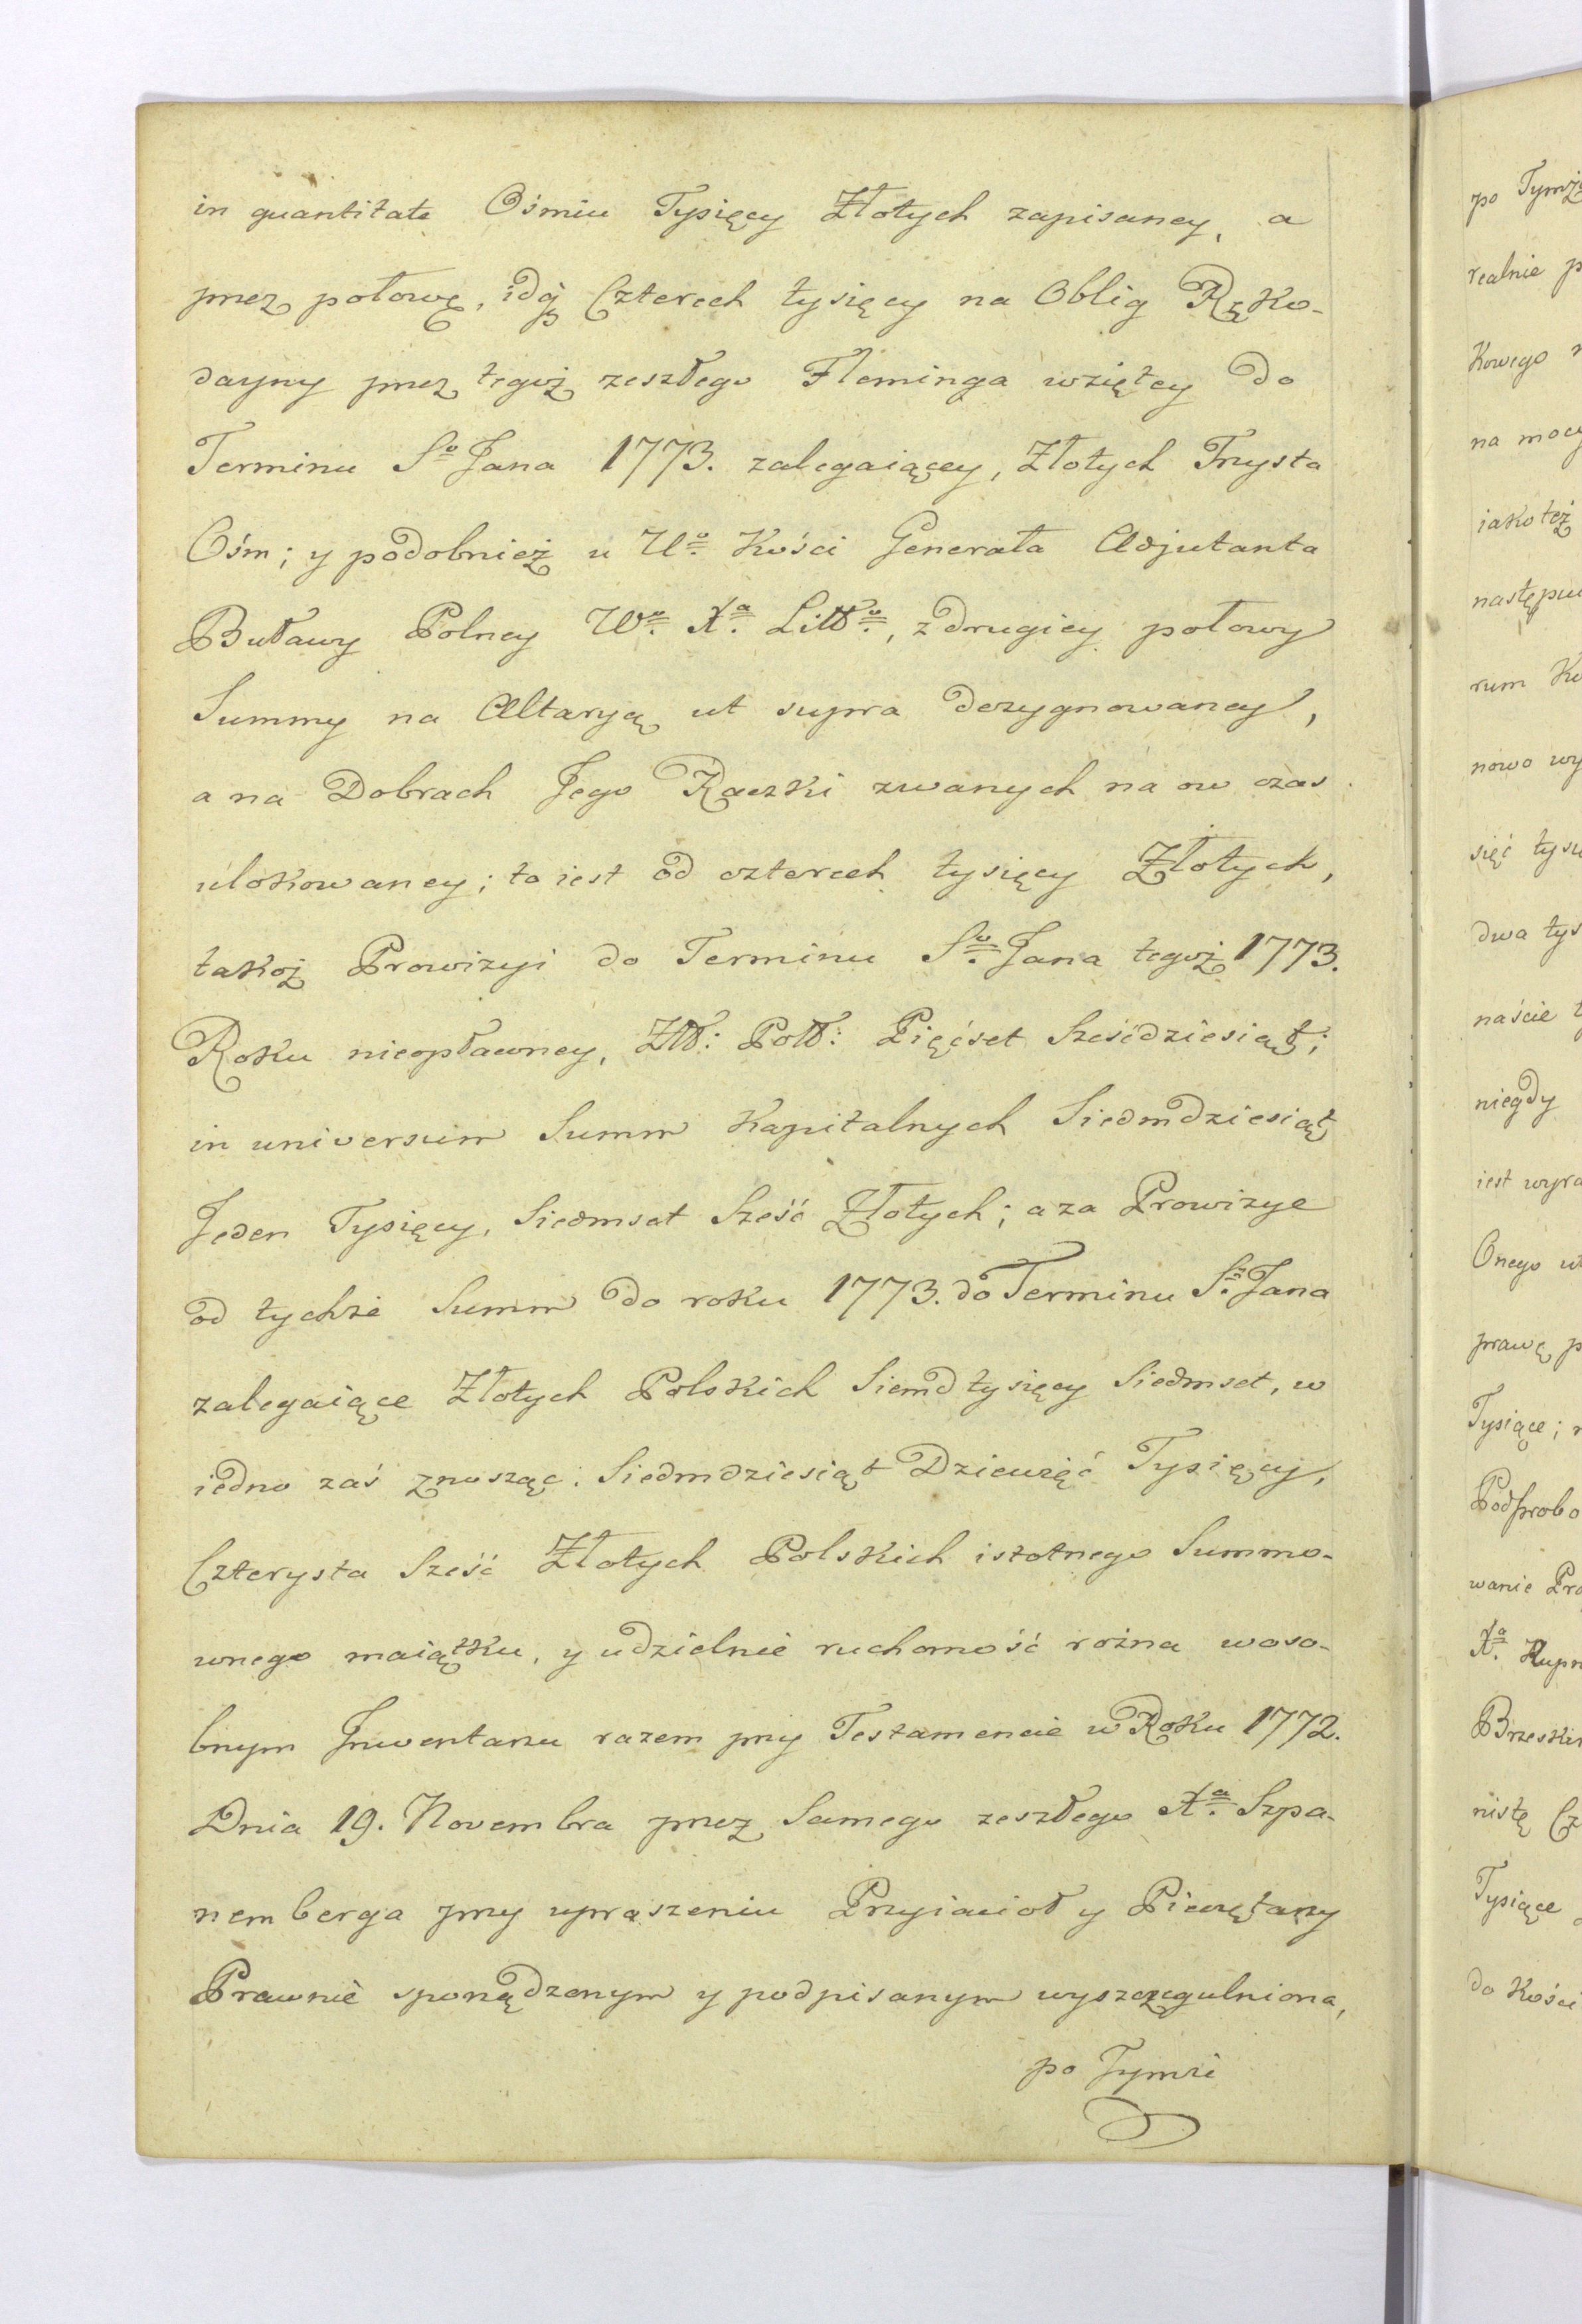 in quantitate Ośmiu Tysięcy Złotych zapisaney, a
przez połowę, idq́ Czterech tysięcy na Oblig Ręko-
dayny przez tegoż zeszłego Fleminga wziętey do
Terminu Sº Jana 1773. zalegaiącey, Złotych Trzysta
Ośm; y podobnież u Wº Kości Generała Adjutanta
Buławy Polney Wº. Xª. Littº., z drugiey połowy
Summy na Altaryą ut supra dezygnowaney,
a na Dobrach Jego Raczki zwanych na ow czas
ulokowaney; to iest od czterech tysięcy Złotych,
takoż Prowizyi do Terminu Sº. Jana tegoż 1773.
Roku nieopławney, Złł: Poll: Pięćset Sześćdziesiąt;
in universum Summ Kapitalnych Siedmdziesiąt
Jeden Tysięcy, Siedmset Sześć Złotych; a za Prowizye
od tychże Summ do roku 1773. do Terminu S. Jana
zalegaiące Złotych Polskich Siemd tysięcy Siedmset, w
iedno zaś znosząc: Siedmdziesiąt Dziewięć Tysięcy,
Czterysta Sześć Złotych Polskich istotnego Summo-
wnego maiątku, y udzielnie ruchomość rożna w oso-
bnym Inwentarzu razem przy Testamencie w Roku 1772.
Dnia 19. Novembra przez Samego zeszłego Xª. Szpa-
nemberga przy upraszeniu Przyiacioł y Pieczętarzy
Prawnie sporządzonym y podpisanym wyszczegulniona,
po Tymże
po Tymż
realnie p
Kowego
na mocy
iako też
następu
rum Ko
nowo wy
sięć tysi
dwa tys
naście
niegdy
iest wyra
Onego
prawę p
Tysiące;
wanie Pro
Xª.
Brzeski
nistę Cz
Tysiące
do Kości